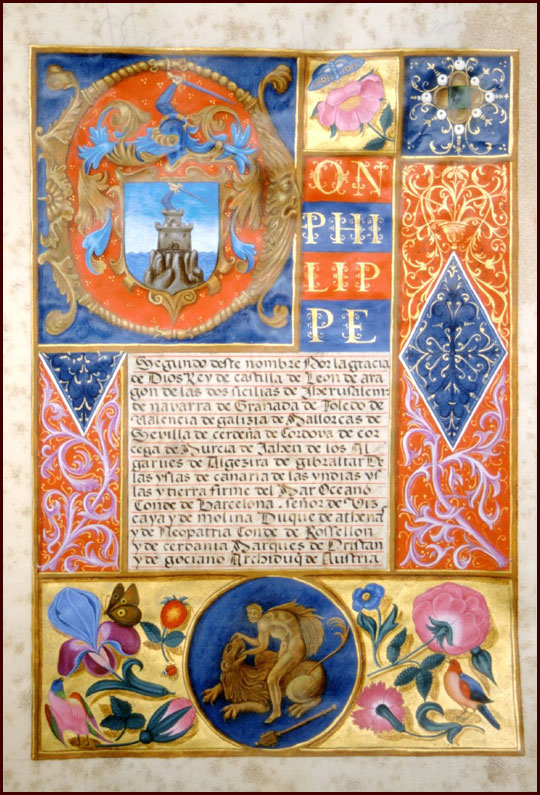 ON
PHI
LIP
PE
Segundo deste nombre Por la gracia
de Dios Rey de castilla de Leon de ara
gon de las dos sicilias de Iherusalem
de navarra de Granada de Toledo de
Valencia de galizia de Mallorcas de
Sevilla de cerdeña de Cordova de cor
cega de Murcia de Jahen de los Al
garves de Algezira de gibraltar De
las yslas de canaria de las yndias ys
las y tierra firme del Mar Occeano
Conde de Barcelona señor de Viz
caya y de molina Duque de athenas
y de Neopatria Conde de Rossellon
y de cerdania Marques de Oristan
y de gociano Archiduq de Austria